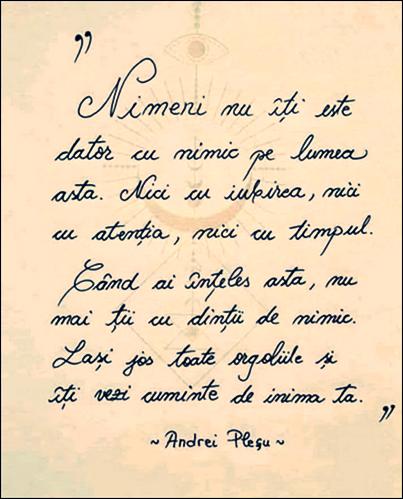 „
Nimeni nu îți este
dator cu nimic pe lumea
asta. Nici cu iubirea, nici
cu atenția, nici cu timpul.
Când ai înțeles asta, nu
mai ții cu dinții de nimic.
Lași jos toate orgoliile și
îți vezi cuminte de inima ta.
”
~ Andrei Pleșu ~